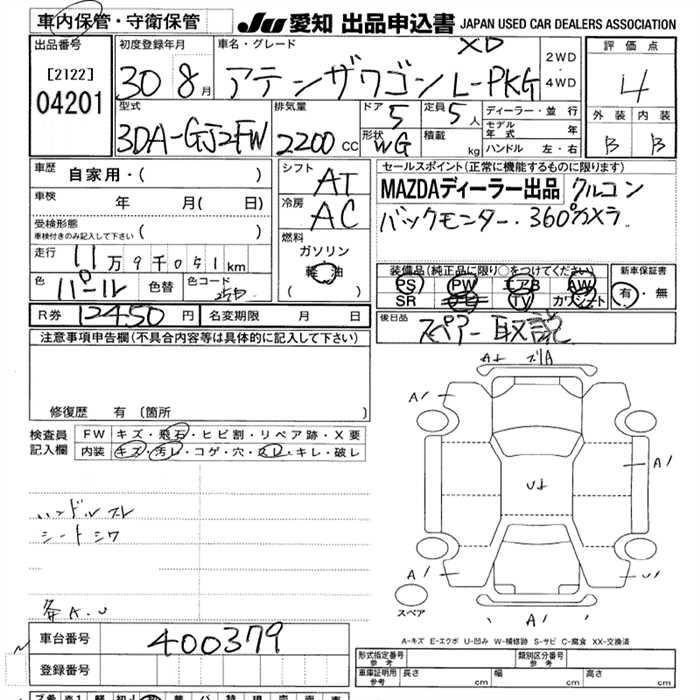 車内保管・守衛保管
JU 愛知 出品申込書 JAPAN USED CAR DEALERS ASSOCIATION
出品番号
[2122]
04201
初度登録年月
30 8月
車名・グレード
XD
アテンザワゴン L-PKG
2WD
4WD
評価点
4
外装 内装
B B
型式
3DA-GJ2FW
排気量
2200 cc
ドア
5
形状
WG
定員
5人
積載
kg
ディーラー・並行
モデル年式 年
ハンドル 左・右
車歴
自家用・( )
車検 年 月( 日)
受検形態
車検付きのみ記入して下さい ( )
走行 11万9千051km
色 パール 色替 色コード 25D
R券 12450円 名変期限 月 日
シフト
AT
冷房
AC
燃料
ガソリン
軽油
( )
セールスポイント(正常に機能するものに限ります)
MAZDAディーラー出品 クルコン
バックモニター・360°カメラ
装備品(純正品に限り○をつけてください)
PS PW エアB AW
SR ナビ TV カワシート
新車保証書
有・無
後日品
スペアー 取説
注意事項申告欄(不具合内容等は具体的に記入して下さい)
修復歴 有 〔箇所 〕
検査員記入欄
FW キズ・飛石・ヒビ割・リペア跡・X要
内装 キズ・汚レ・コゲ・穴・スレ・キレ・破レ
ハンドルスレ
シートシワ
各A.U
A1
A1
U1
A1
U1
A1
スペア
A-キズ E-エクボ U-凹み W-補修跡 S-サビ C-腐食 XX-交換済
車台番号 400379
登録番号
形式指定番号 参考
類別区分番号 参考
車庫証明用 参考 長さ cm 幅 cm 高さ cm